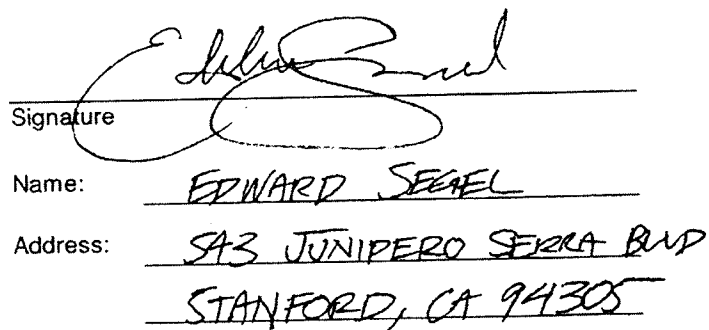 Signature
Name: EDWARD SEGEL
Address: 543 JUNIPERO SERRA BLVD
STANFORD, CA 94305